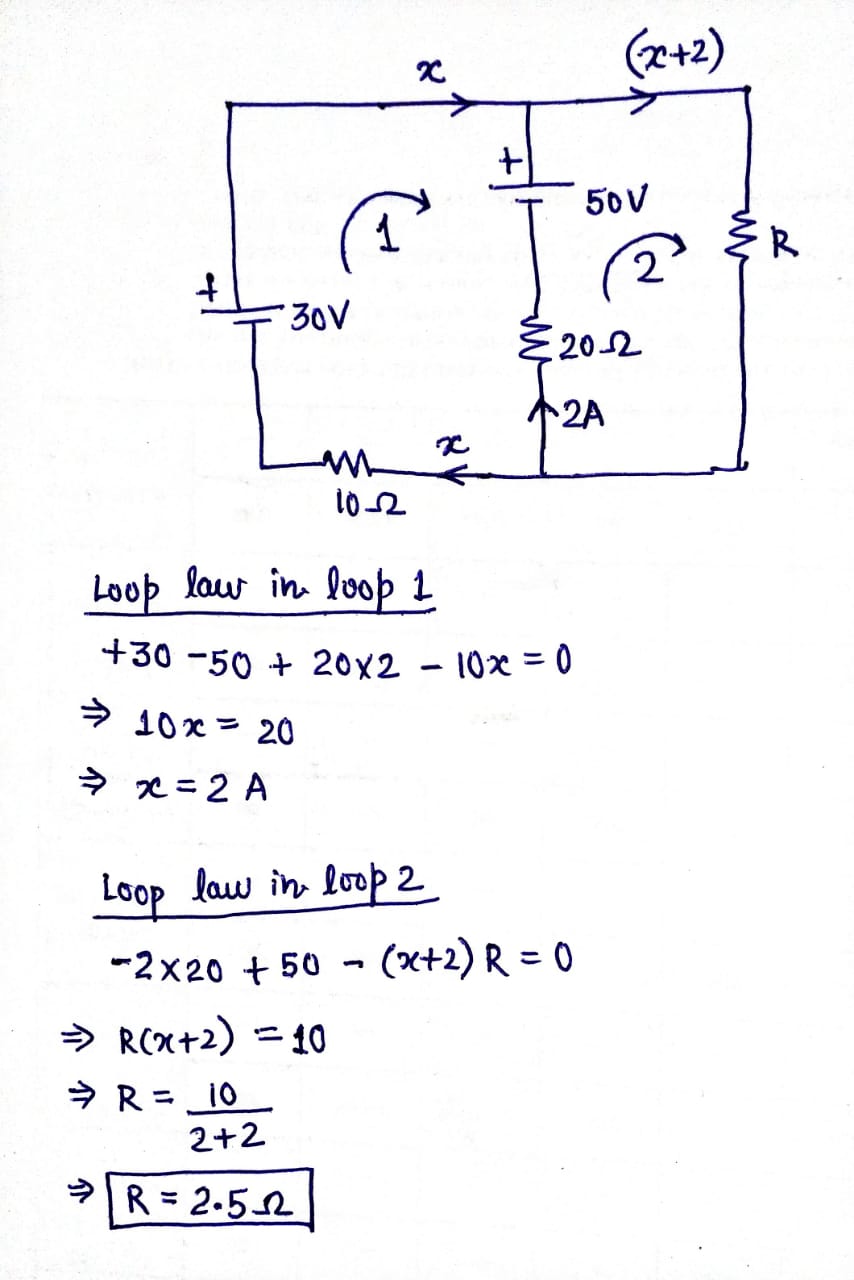 x
(x+2)
+
50V
1
2
R
+
30V
20Ω
2A
x
10Ω
Loop law in loop 1
+30 -50 + 20×2 - 10x = 0
⇒ 10x = 20
⇒ x = 2 A
Loop law in loop 2
-2×20 + 50 - (x+2) R = 0
⇒ R(x+2) = 10
⇒ R = 10
2+2
⇒ R = 2.5Ω